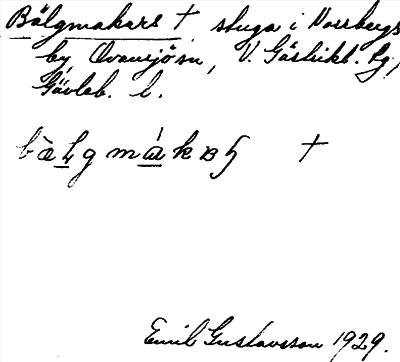 Bälgmakars † stuga i Norrbergs
by, Ovansjö sn, V. Gästrikl. tg,
Gävleb. l.
bä̀lgmákaʂ †
Emil Gustavsson 1929.